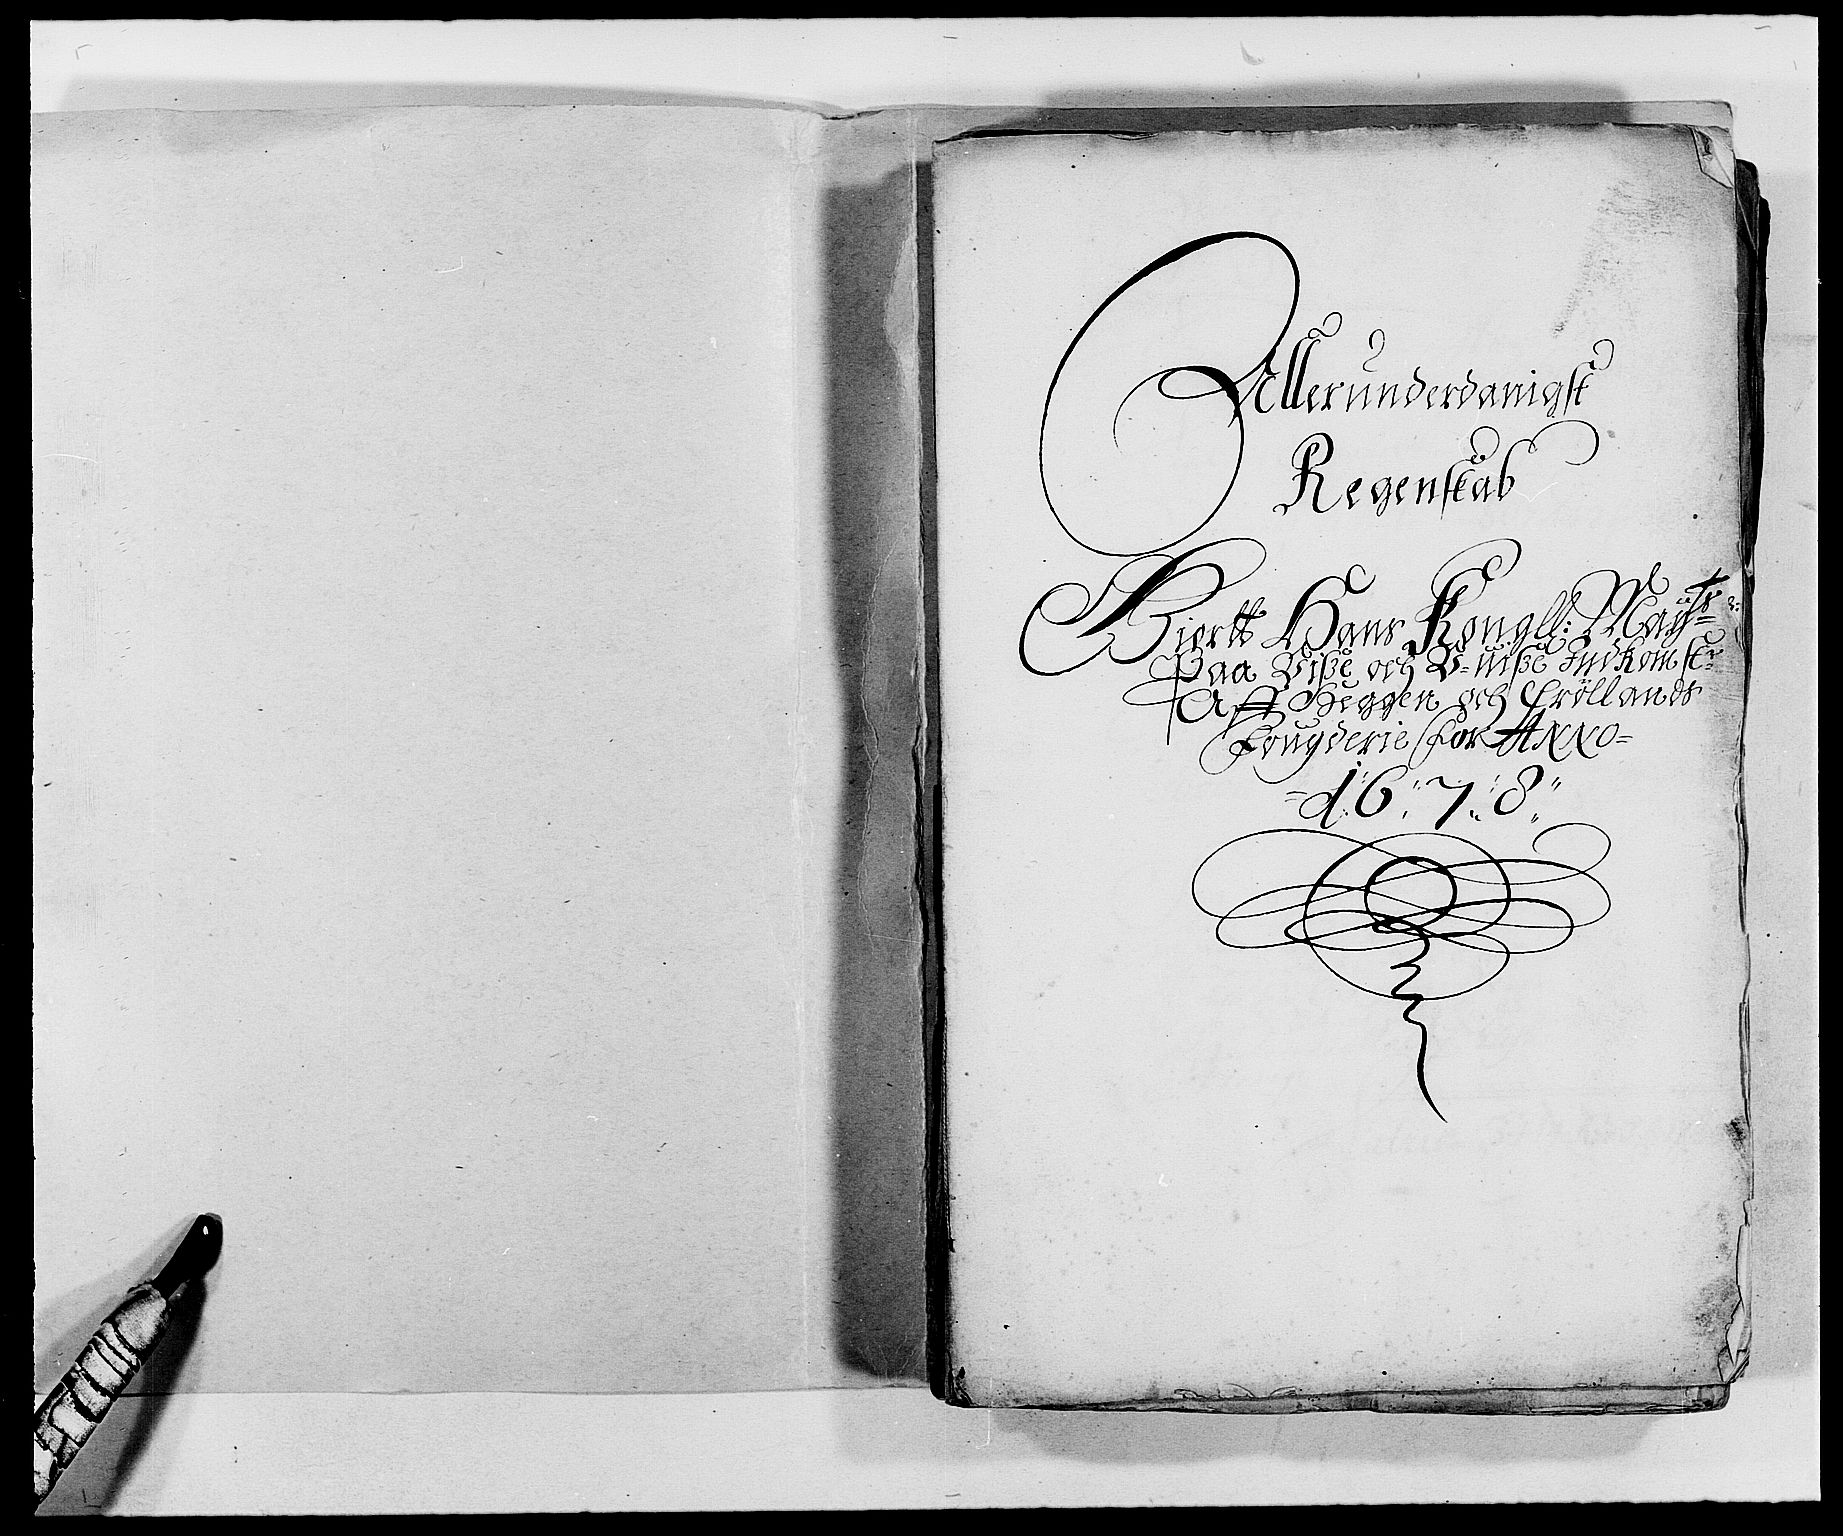 Allerunderdanigst
Regenskab
Giortt Hans Kongll: Maÿts:
Paa Viße och U-uiße Indkomster
Aff Heggen och Fröllands
Fougderie for ANNO
1678